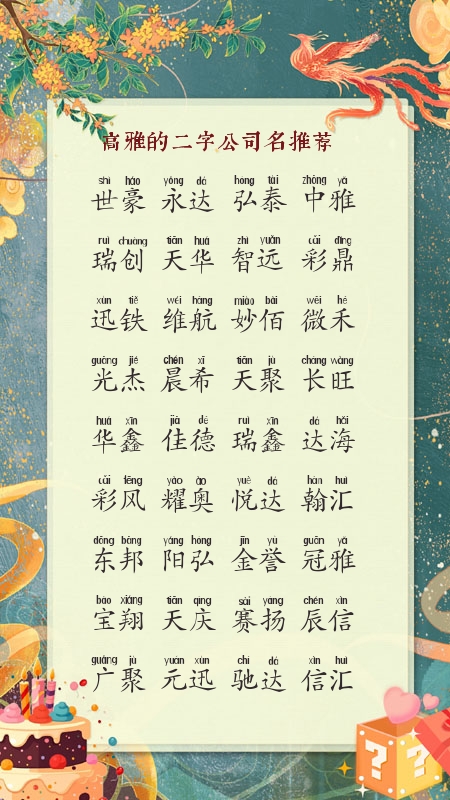 高雅的二字公司名推荐
shì háo yǒng dá hóng tài zhōng yǎ
世豪 永达 弘泰 中雅
ruì chuàng tiān huá zhì yuǎn cǎi dǐng
瑞创 天华 智远 彩鼎
xùn tiě wéi háng miào bǎi wēi hé
迅铁 维航 妙佰 微禾
guāng jié chén xī tiān jù cháng wàng
光杰 晨希 天聚 长旺
huá xīn jiā dé ruì xīn dá hǎi
华鑫 佳德 瑞鑫 达海
cǎi fēng yào ào yuè dá hàn huì
彩风 耀奥 悦达 翰汇
dōng bāng yáng hóng jīn yù guān yǎ
东邦 阳弘 金誉 冠雅
bǎo xiáng tiān qìng sài yáng chén xìn
宝翔 天庆 赛扬 辰信
guǎng jù yuán xùn chí dá xìn huì
广聚 元迅 驰达 信汇
? ?